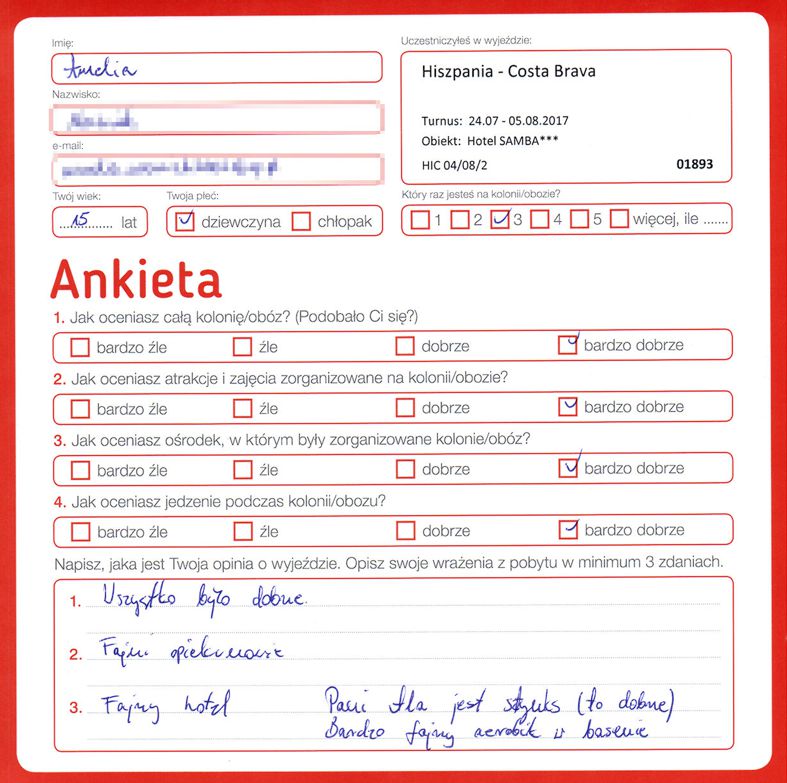 Imię:
Amelia
Uczestniczyłeś w wyjeździe:
Hiszpania - Costa Brava
Turnus: 24.07 - 05.08.2017
Obiekt: Hotel SAMBA***
HIC 04/08/2
01893
Nazwisko:
e-mail:
Twój wiek:
15 lat
Twoja płeć:
dziewczyna chłopak
Który raz jesteś na kolonii/obozie?
1 2 3 4 5 więcej, ile .......
Ankieta
1. Jak oceniasz całą kolonię/obóz? (Podobało Ci się?)
bardzo źle źle dobrze bardzo dobrze
2. Jak oceniasz atrakcje i zajęcia zorganizowane na kolonii/obozie?
bardzo źle źle dobrze bardzo dobrze
3. Jak oceniasz ośrodek, w którym były zorganizowane kolonie/obóz?
bardzo źle źle dobrze bardzo dobrze
4. Jak oceniasz jedzenie podczas kolonii/obozu?
bardzo źle źle dobrze bardzo dobrze
Napisz, jaka jest Twoja opinia o wyjeździe. Opisz swoje wrażenia z pobytu w minimum 3 zdaniach.
1. Wszystko było dobrze.
2. Fajni opiekunowie
3. Fajny hotel
Pani Ala jest sztyks (to dobrze)
Bardzo fajny aerobik w basenie